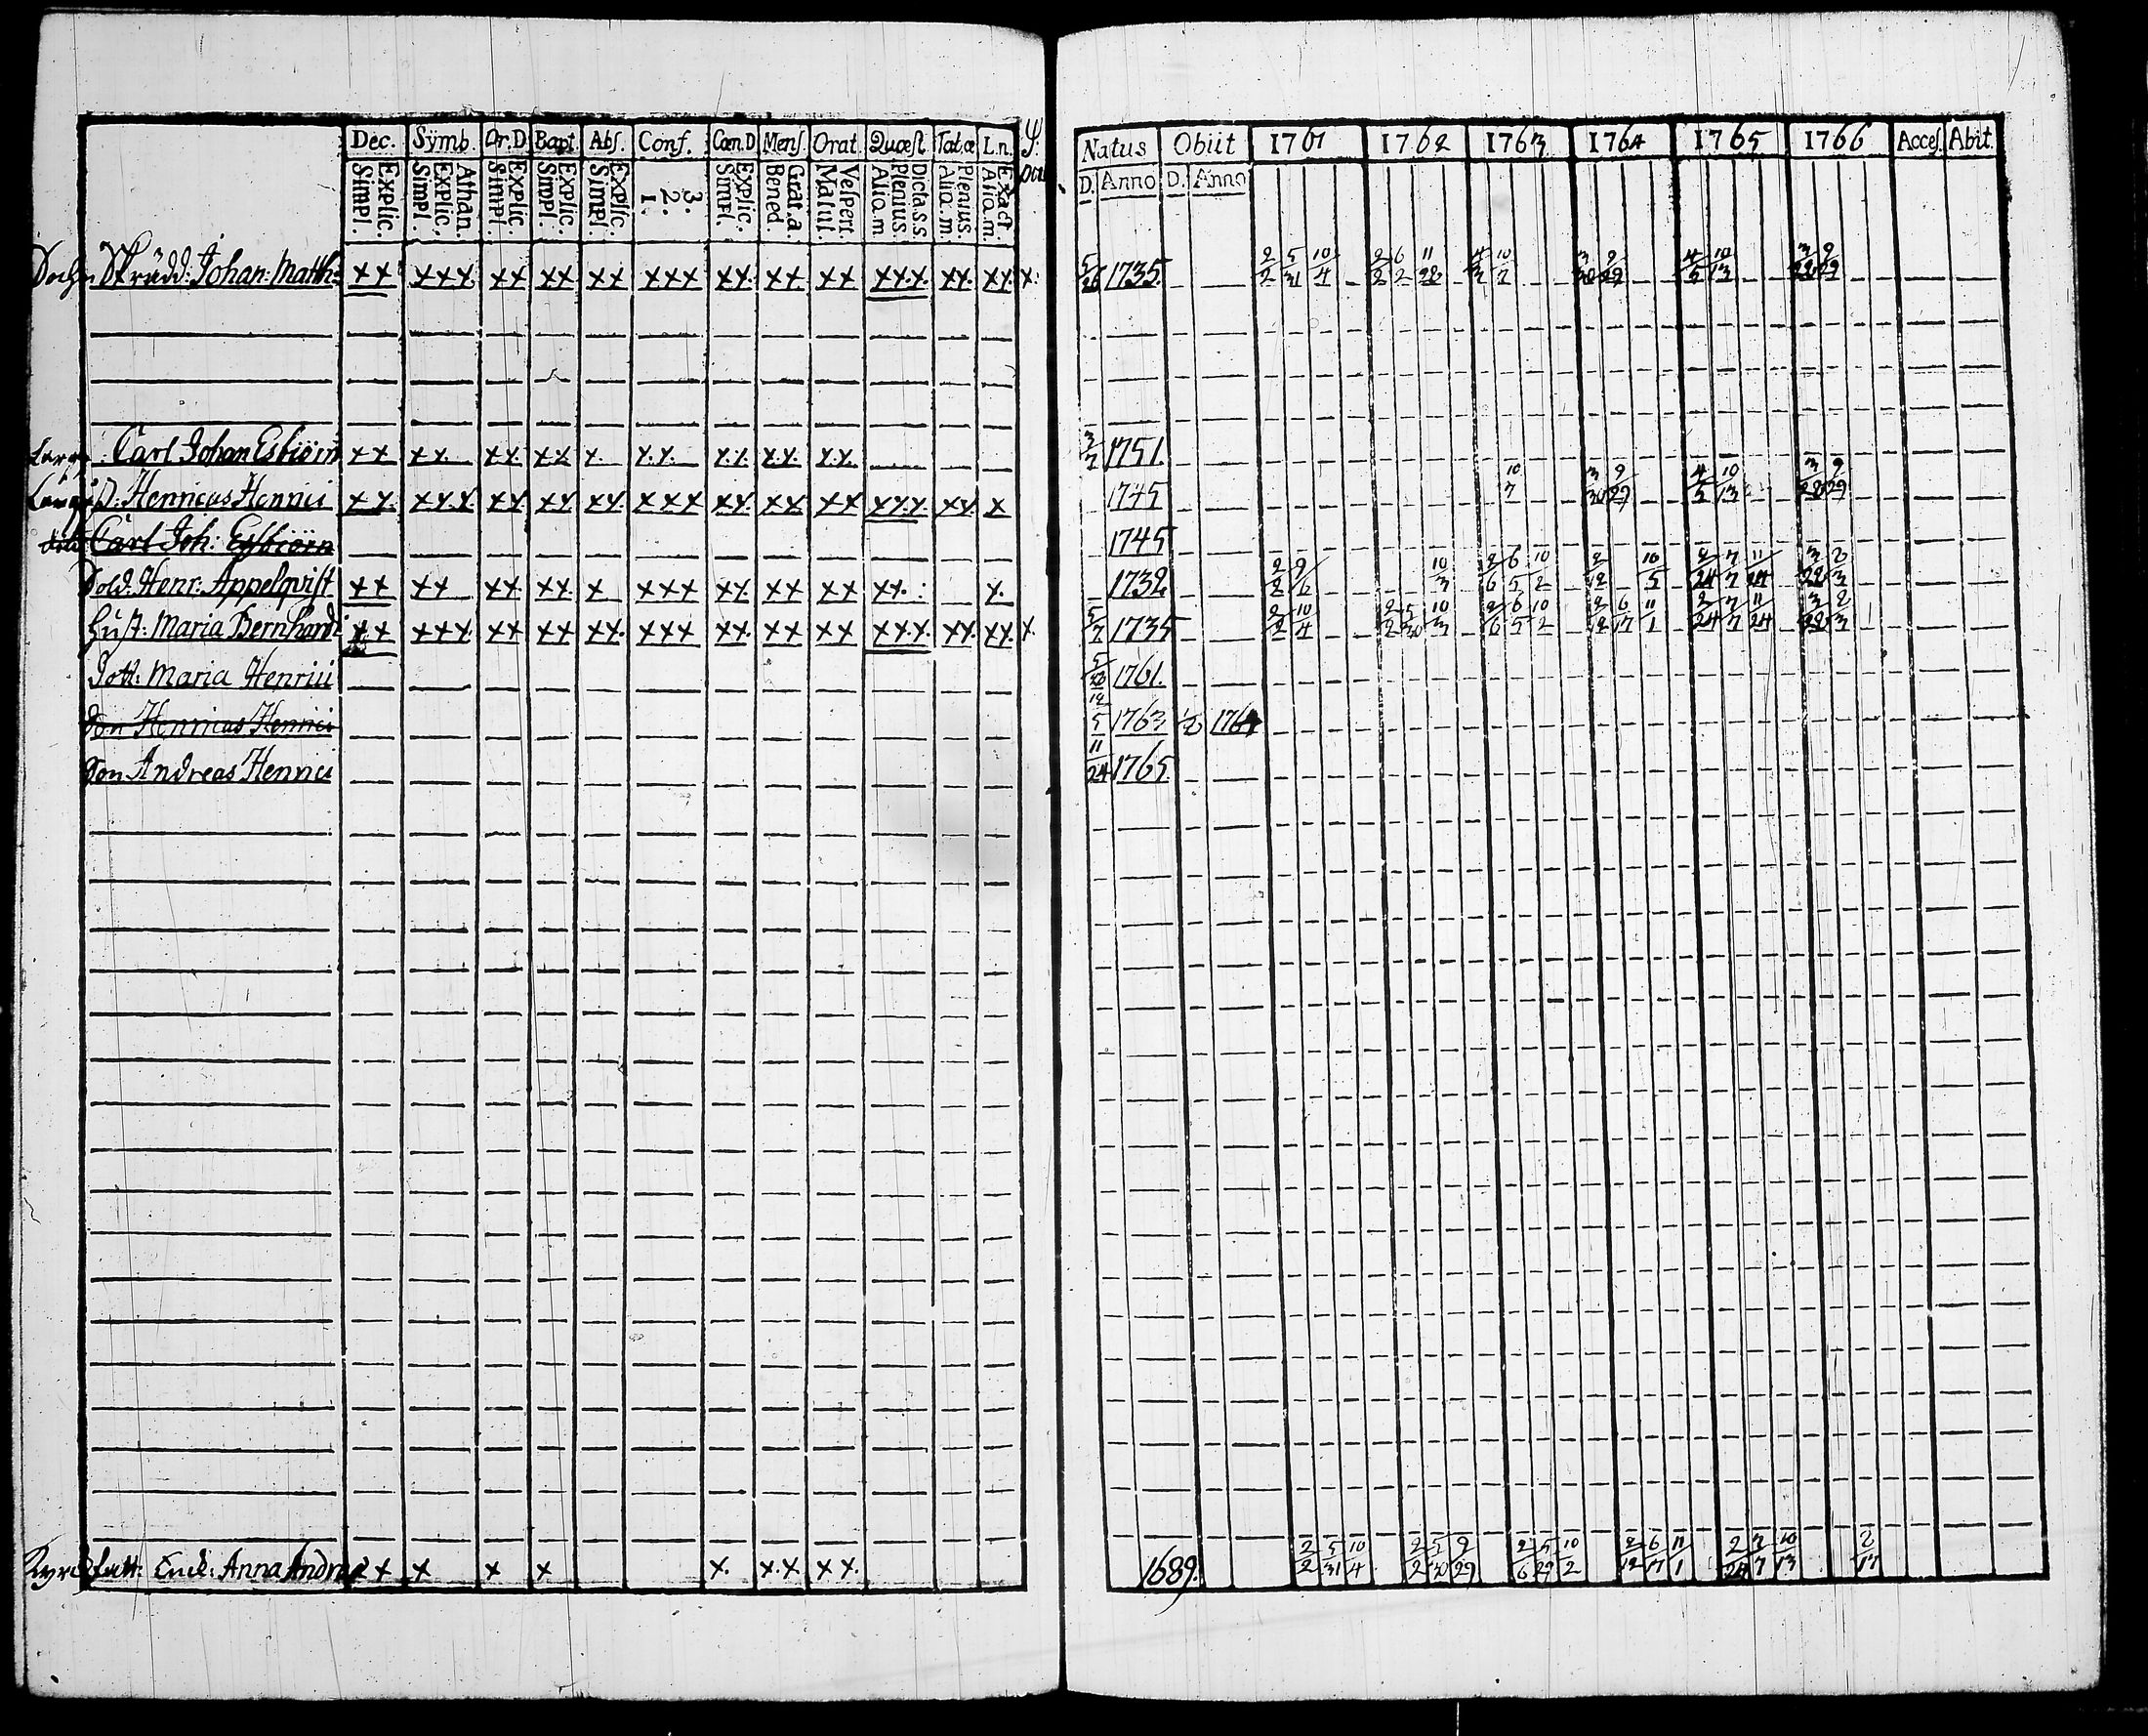 Dec. Symb. Or.D Bapt. Abs. Conf. Cœn.D Mens. Orat. Quæst. Tat.æ L.n.
Simpl. Explic. Simpl. Explic. Athan. Simpl. Explic. Simpl. Explic. Simpl. Explic. 1. 2. 3. Simpl. Explic. Bened. Grat.a Matut. Vespert. Aliq.m Plenius. Dicta s.s. Aliq.m. Plenius. Aliq.m. Exact.
Natus Obiit 1761 1762 1763 1764 1765 1766 Acces. Abit.
D. Anno D. Anno
Skrädd: Johan: Matth: xx xxx xx xx xx xxx xx. xx xx xx.x. xx. xx. x: 5/26 1735. 2/2 5/31 10/4 2/2 6/2 11/28 4/3 10/2 3/30 9/29 4/5 10/13 3/28 9/29
Carl Johan Esbiörn xx xx xx xx x x.x. x.x. x.x. x.x. 3/7 1751.
Henricus Henrici xx. xx.x. xx. xx. xx. xxx xx. xx xx xx.x. xx. x 1745 10/7 3/30 9/29 4/5 10/13 3/28 9/29
Carl Joh: Esbiörn 1745
Sold. Henr: Appelqvist xx xx xx xx. x xxx xx. xx xx xx. x. 1732 2/2 9/6 10/3 2/6 6/5 10/2 2/12 10/5 2/24 7/7 11/24 3/22 2/3
Hust: Maria Bernhardi xx xxx. xx xx xx. xxx xx. xx xx xx.x. xx. xx. x. 5/7 1735 2/2 10/4 2/2 5/30 10/3 2/6 6/5 10/2 2/12 6/17 11/1 2/24 7/7 11/24 3/22 2/3
Dott: Maria Henrici 1761.
Son Henricus Henrici 12/5 1763 1764
Son Andreas Henrici 11/24 1765.
Enck: Anna Andreæ x x x x x. x.x xx. 1689. 2/2 5/31 10/4 2/2 5/30 9/29 2/6 5/29 10/2 2/12 6/17 11/1 2/24 7/7 10/13 2/17